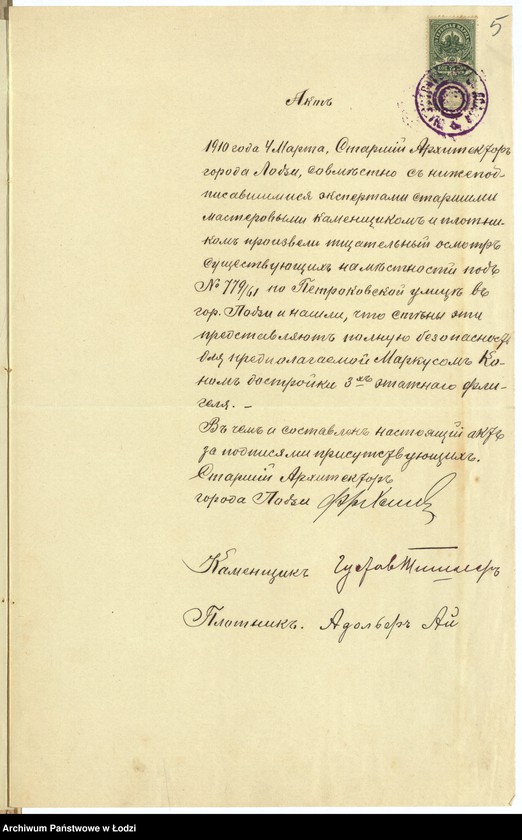 5
Актъ
1910 года 4 Марта, Старшій Архитекторъ
города Лодзи, совмѣстно съ нижепод-
писавшимися экспертами старшими
мастеровыми каменщикомъ и плотни-
комъ произвели тщательный осмотръ
существующихъ на мѣстности подъ
№ 779/61 по Петроковской улицѣ въ
гор. Лодзи и нашли, что стѣны эти
представляютъ полную безопасность
для предполагаемой Маркусомъ Ко-
номъ достройки 3хъ этажнаго фли-
геля. –
Въ чемъ и составленъ настоящій актъ
за подписями присутствующихъ.
Старшій Архитекторъ
города Лодзи
Каменщикъ Густавъ
Плотникъ. Адольфъ Ай
Archiwum Państwowe w Łodzi